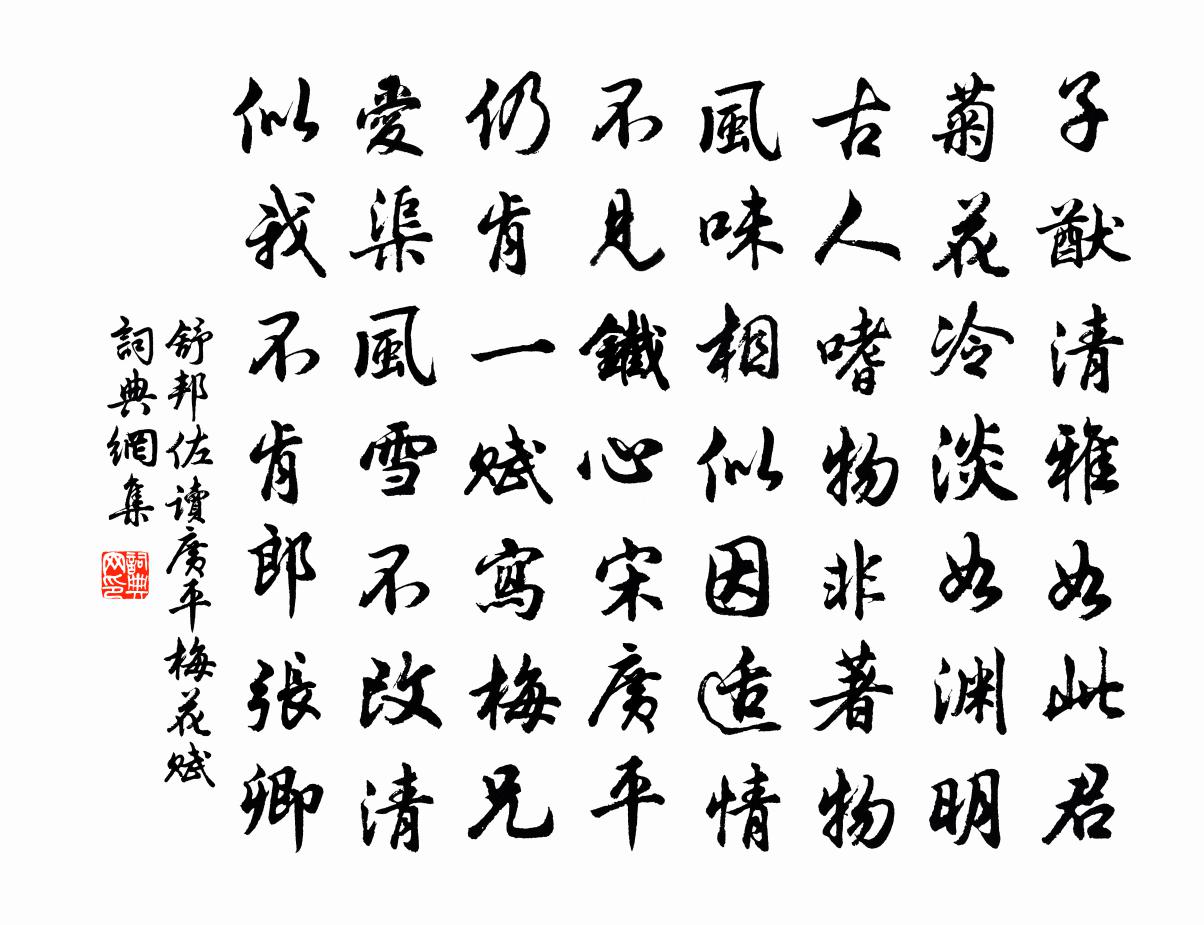 子猷清雅如此君
菊花冷淡如渊明
古人嗜物非著物
風味相似因适情
不見鐵心宋廣平
仍肯一賦寫梅兄
愛渠風雪不改清
似我不肯郎張卿
舒邦佐讀廣平梅花賦
詞典網集
詞典网印